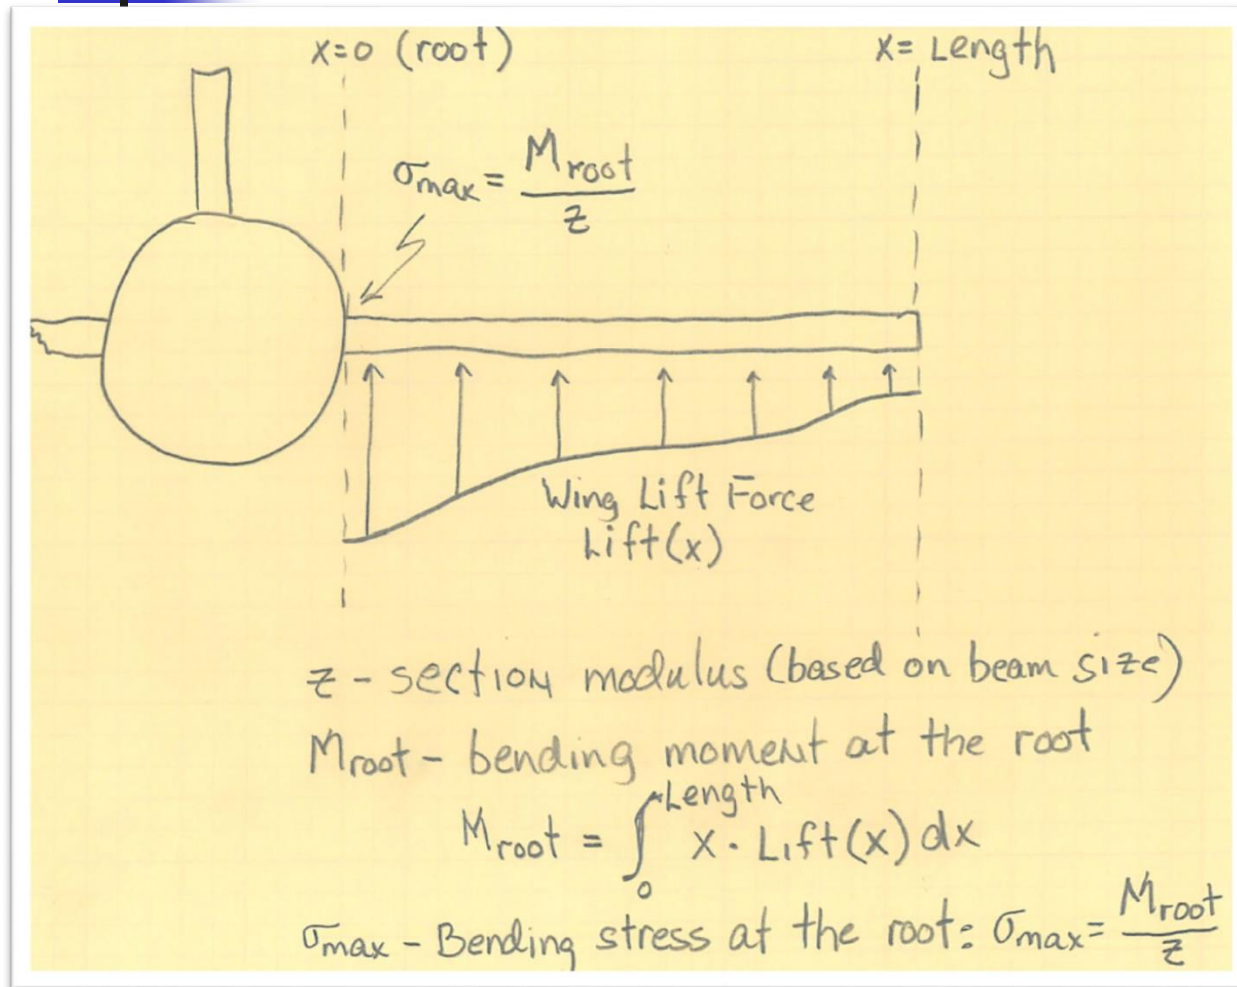 x=0 (root)
x= Length
σmax = Mroot / z
Wing Lift Force
Lift(x)
z - section modulus (based on beam size)
Mroot - bending moment at the root
Mroot = ∫₀^Length x · Lift(x) dx
σmax - Bending stress at the root: σmax = Mroot / z